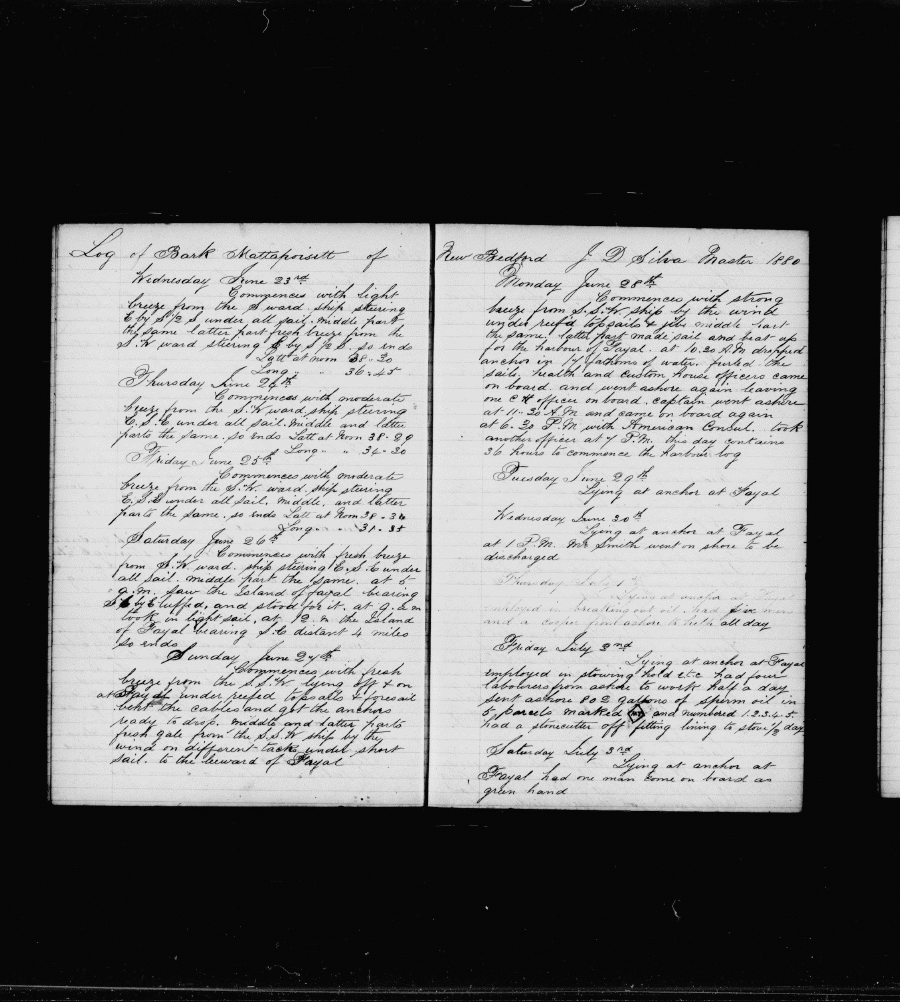 Log of Bark Mattapoisett of
Wednesday June 23rd
Commences with light
breeze from the S ward. ship steering
E by S 1/2 S under all sail. middle part
the same latter part fresh breeze from the
S.W ward steering E by S 1/2 S. so ends
Latt at noon 38-20
Long " " 36-45
Thursday June 24th
Commences with moderate
breeze from the S.W ward ship steering
E.S.E under all sail. Middle and latter
parts the same. so ends Latt at Noon 38-29
Long " " 34-20
Friday June 25th
Commences with moderate
breeze from the S.W. ward. ship steering
E.S.E under all sail. middle. and latter
parts the same. so ends Latt at Noon 38-36
Long " " 31-35
Saturday June 26th
Commences with fresh breeze
from S.W. ward. ship steering E.S.E under
all sail. middle part the same. at 5
a.m. saw the Island of fayal bearing
by E luffed. and stood for it. at 9. a.m
took in light sail, at 12. m the Island
of Fayal bearing S.E distant 4 miles
so ends
Sunday June 27th
Commences with fresh
breeze from the S.S.W lying off & on
at Fayal under reefed topsails & foresail
bent the cables and got the anchors
ready to drop. middle and latter parts
fresh gale from the S.S.W ship by the
wind on different tacks under short
sail. to the leeward of Fayal
New Bedford J D Silva Master 1880
Monday June 28th
Commences with strong
breeze from S.S.W. ship by the wind
under reef'd topsails & jib middle part
the same. latter part made sail and beat up
for the harbour of Fayal. at 10.30 A.M dropped
anchor in 17 fathoms of water. furled the
sails. health and custom house officers came
on board. and went ashore again leaving
one C H officer on board. captain went ashore
at 11-30 A.M and came on board again
at 6-30 P.M with American Consul. took
another officer at 7 P.M. this day contains
36 hours to commence the harbour log
Tuesday June 29th
Lying at anchor at Fayal
Wednesday June 30th
Lying at anchor at Fayal
at 1 P.M. Mr Smith went on shore to be
discharged
Thursday July 1st
Lying at anchor at Fayal
employed in breaking out oil. had six men
and a cooper from ashore to help all day
Friday July 2nd
Lying at anchor at Fayal
employed in stowing hold etc had four
labourers from ashore to work half a day
sent ashore 802 gallons of sperm oil in
5 parcels marked and numbered 1.2.3.4.5.
had a stonecutter off fitting lining to stove 1/2 day
Saturday July 3rd
Lying at anchor at
Fayal had one man come on board as
green hand